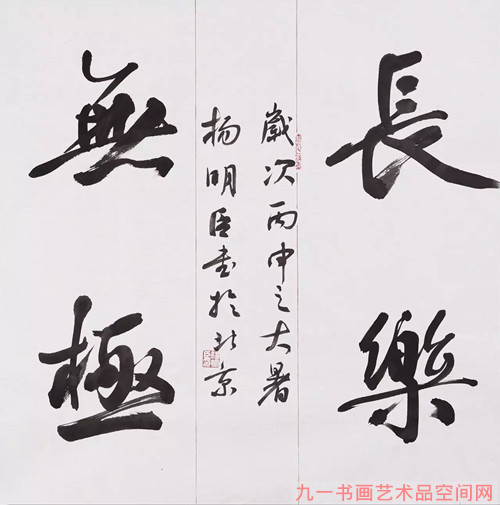 長樂
歲次丙申之大暑
楊明臣書於北京
無極
九一书画艺术品空间网